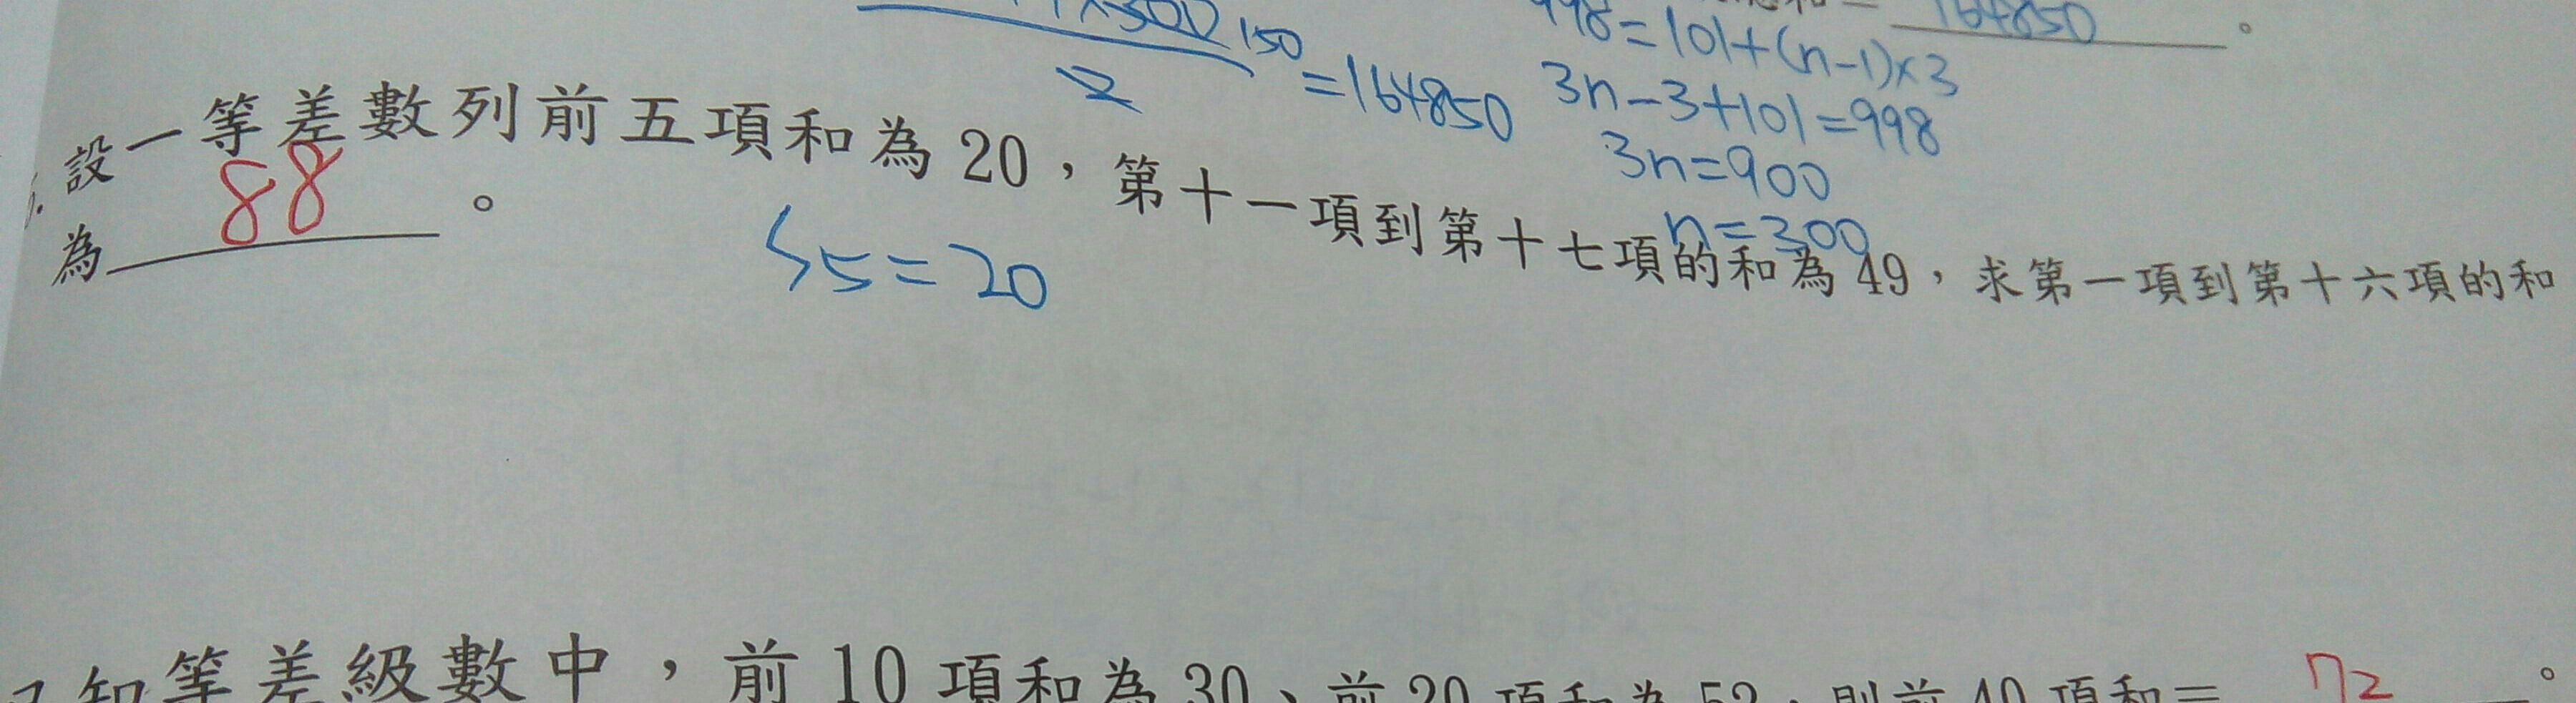 150
2
=164850
164850。
998=101+(n-1)×3
3n-3+101=998
3n=900
n=300
設一等差數列前五項和為 20，第十一項到第十七項的和為 49，求第一項到第十六項的和
為 88 。
S5=20
知等差級數中，前 10 項和為 30、前 20 項和為 52，則前 40 項和= 72 。